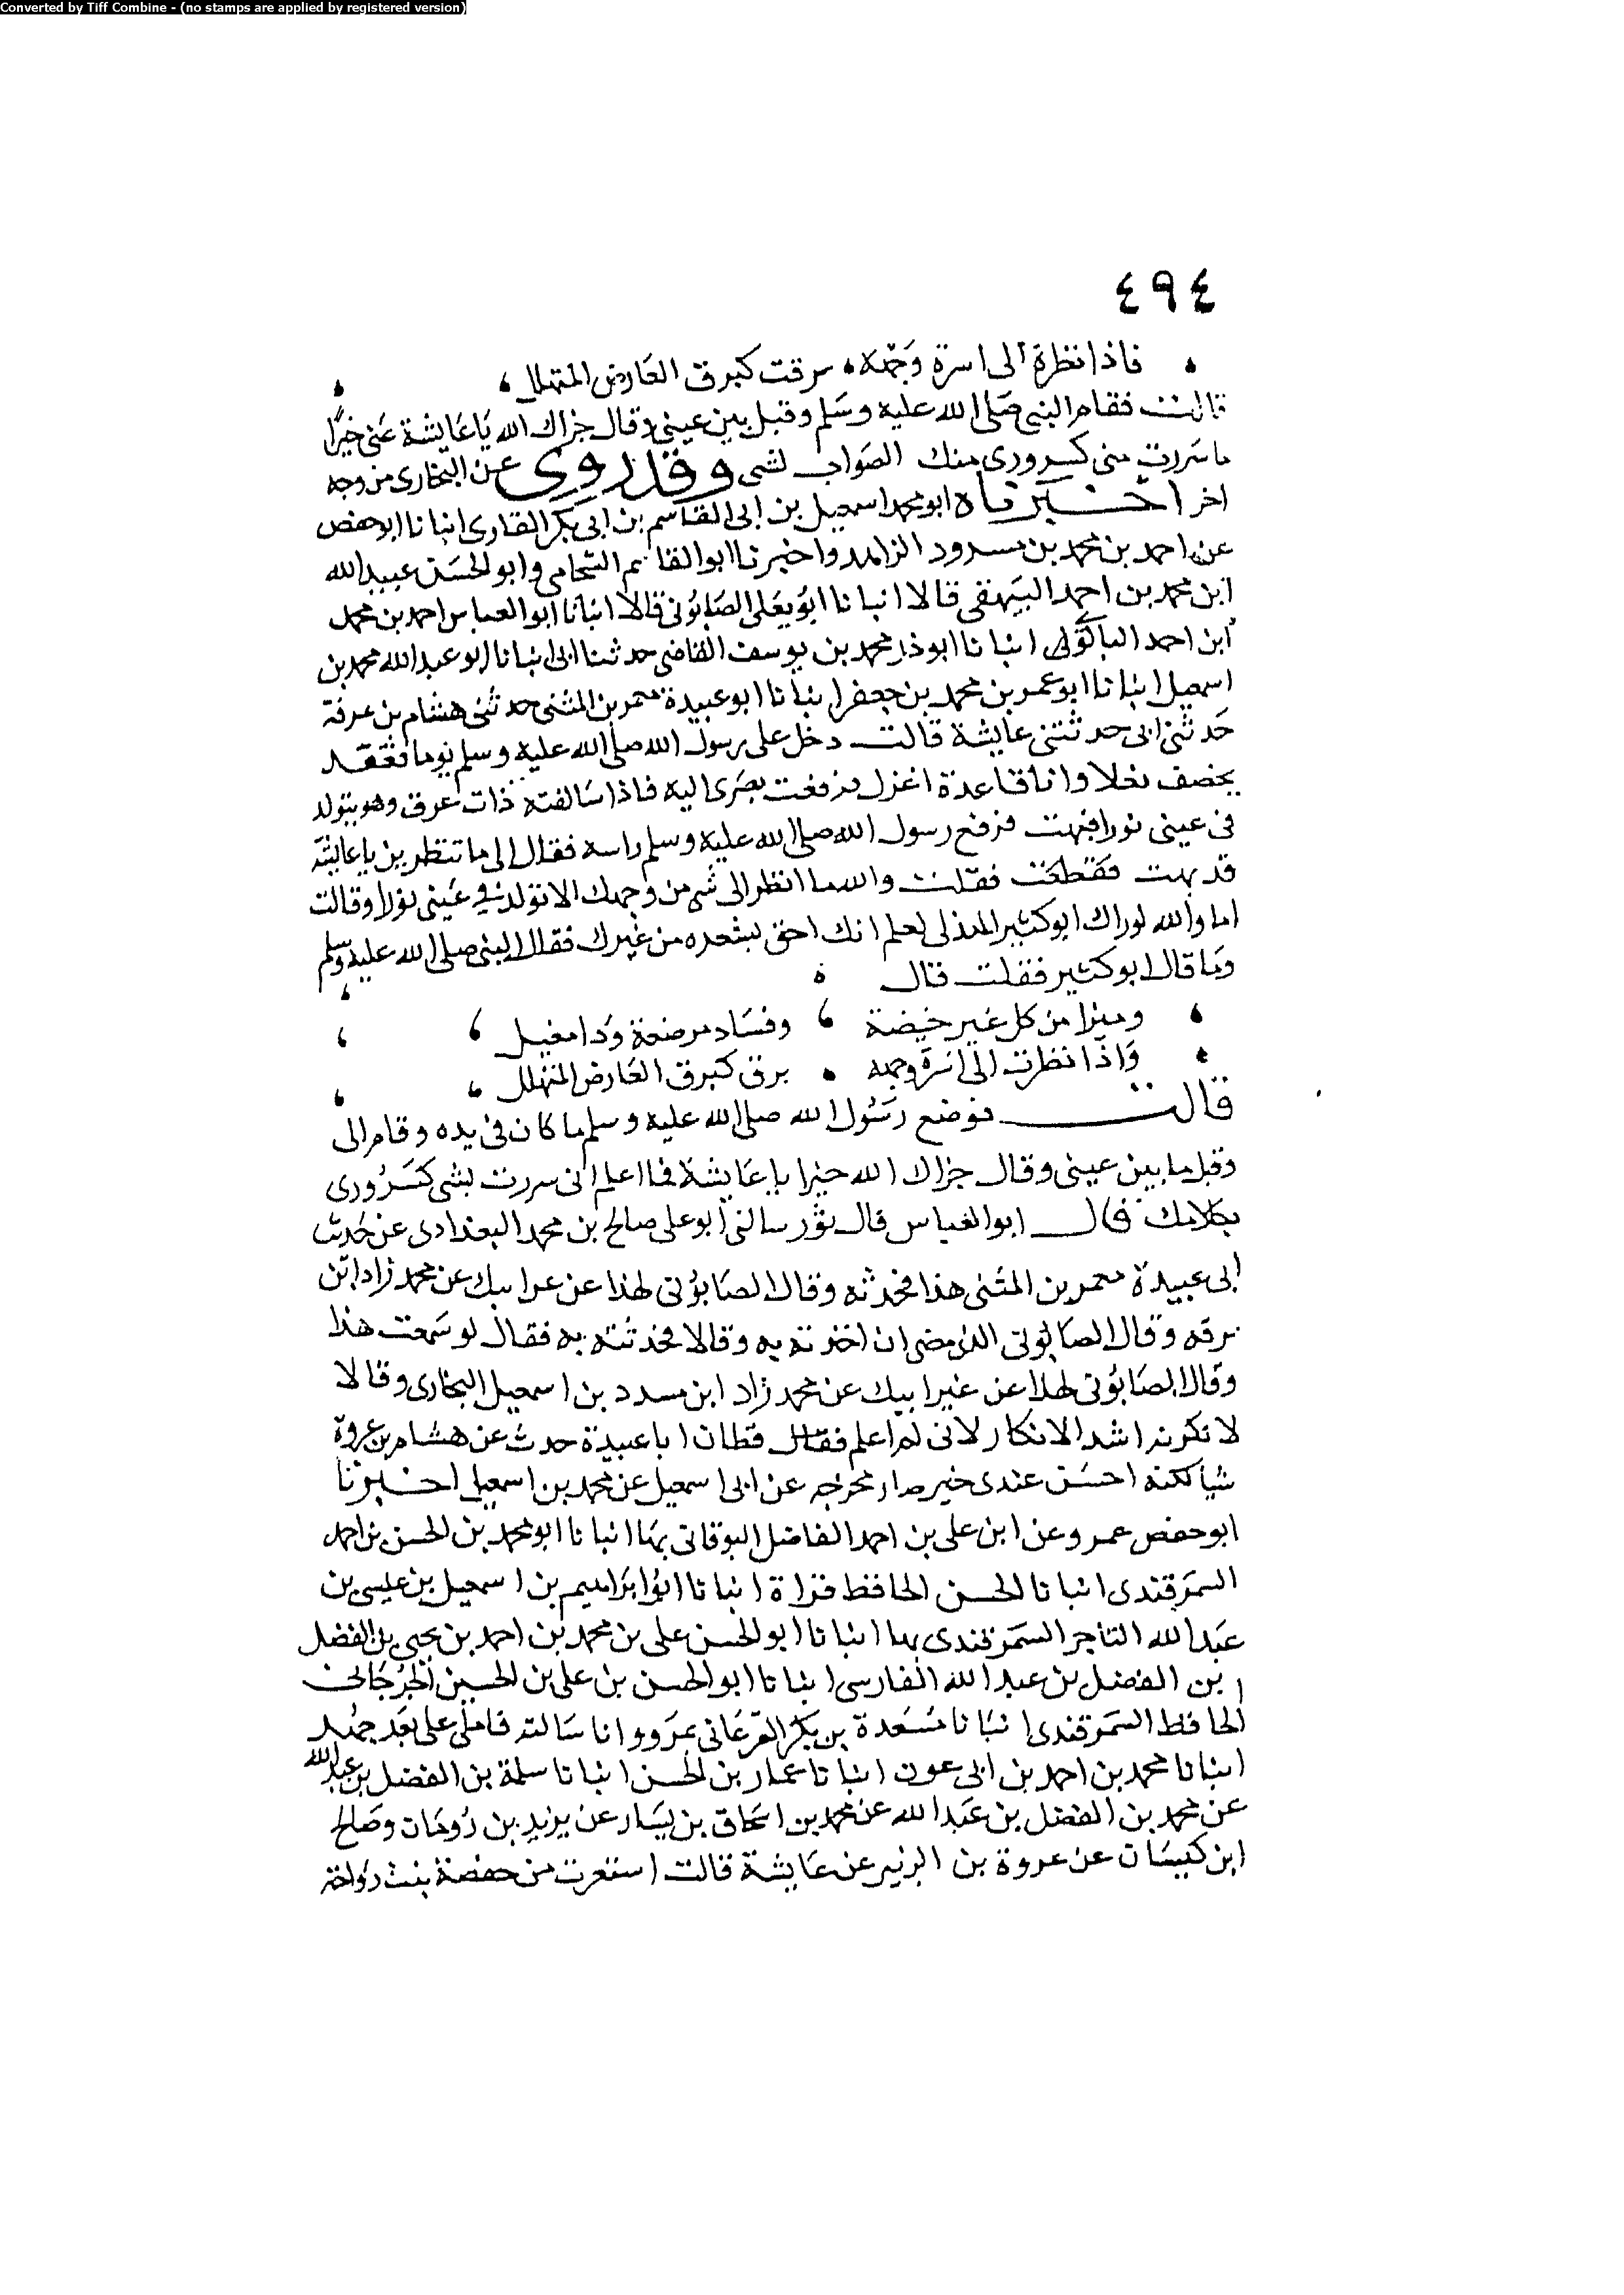 Converted by Tiff Combine - (no stamps are applied by registered version)
٤٩٤
فاذا نظرة الى اسرة وجهه برقت كبرق العارض المتهلل
قالت فقام النبي صلى الله عليه وسلم وقبل بين عيني وقال جزاك الله يا عايشة عني خيرًا
ما سررت مني كسروري منك الصواب لشى وقد روي عن البخارى من وجه
اخر اخبرناه ابو محمد اسمعيل بن ابى القاسم بن ابى بكر القارى انبانا ابو حفص
عن احمد بن محمد بن مسرور الزاهد واخبرنا ابو القاسم الشحامى وابو الحسن عبيد الله
ابن محمد بن احمد البيهقى قالا انبانا ابو يعلى الصابونى قالا انبانا ابو العباس احمد بن محمد
ابن احمد البالوى انبانا ابوذر محمد بن يوسف القاضى حدثنا ابى انبانا ابو عبد الله محمد بن
اسمعيل انبانا ابو عمر بن محمد بن جعفر انبانا ابو عبيدة معمر بن المثنى حدثنى هشام بن عرفة
حدثنى ابى حدثتنى عايشة قالت دخل على رسول الله صلى الله عليه وسلم يوما فقعد
يخصف نعلا وانا قاعدة اغزل فرفعت بصرى اليه فاذا سالفته ذات عرق وهو يتولد
فى عينى نورا فبهت فرفع رسول الله صلى الله عليه وسلم راسه فقال الى ما تنظرين يا عايشة
قد بهت فقلت والله ما انظر الى شى من وجهك الا تولد في عينى نورا وقالت
اما والله لو راك ابو كثير الهذلى لعلم انك احق بشعره من غيرك فقال النبى صلى الله عليه وسلم
وما قال ابو كثير فقلت قال
ومبرا من كل غبر حيضة وفساد مرضعة ودا مغيل
واذا نظرت الى اسرة وجهه برق كبرق العارض المتهلل
قالت فوضع رسول الله صلى الله عليه وسلم ما كان فى يده وقام الى
وقبل ما بين عينى وقال جزاك الله خيرا يا عايشة فما اعلم انى سررت بشى كسرورى
بكلامك قال ابو العباس قال سالنى ابو على صالح بن محمد البغدادى عن حديث
ابى عبيدة معمر بن المثنى هذا فحدثته وقال الصابونى لهذا عن ابيك عن محمد زاد ابن
وقال الصابونى ان به وقالا فحدثته به فقال لو سمعت هذا
وقال الصابونى لهذا عن غير ابيك عن محمد زاد ابن مسدد بن اسمعيل البخارى وقالا
لانكرته اشد الانكار لانى لم اعلم فقال قط ان ابا عبيدة حدث عن هشام بن عروة
شيا لكنه احسن عندى حين صار مخرجه عن ابى اسمعيل عن محمد بن اسمعيل اخبرنا
ابو حفص عمرو عن ابن على بن احمد الفاضل البوقانى بها انبانا ابو محمد بن الحسن بن احمد
السمرقندى انبانا الحسن الحافظ قراة انبانا ابو ابراهيم بن اسمعيل بن عيسى بن
عبد الله التاجر السمرقندى بها انبانا ابو الحسن على بن محمد بن احمد بن يحيى بن الفضل
بن الفضل بن عبد الله الفارسى انبانا ابو الحسن بن على بن الحسين الجرجانى
الحافظ السمرقندى انبانا مسعدة بن بكر الفرغانى بمرو وانا سالته فاملى على بعد جهد
انبانا محمد بن احمد بن ابى عون انبانا عمار بن الحسن انبانا سلمة بن الفضل بن عبد الله
عن محمد بن الفضل بن عبد الله عن محمد بن اسحاق بن يسار عن يزيد بن رومان وصالح
ابن كيسان عن عروة بن الزبير عن عايشة قالت استعرت من حفصة بنت رواحة